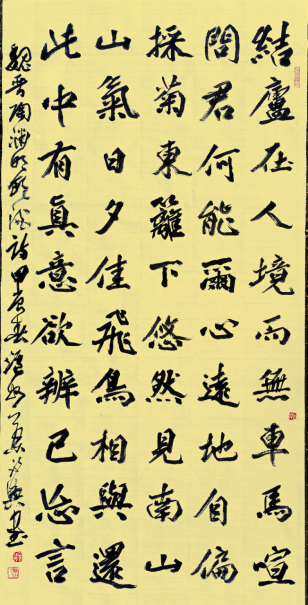 結廬在人境而無車馬喧
問君何能爾心遠地自偏
採菊東籬下悠然見南山
山氣日夕佳飛鳥相與還
此中有眞意欲辨已忘言
魏晉陶淵明 詩 春 書